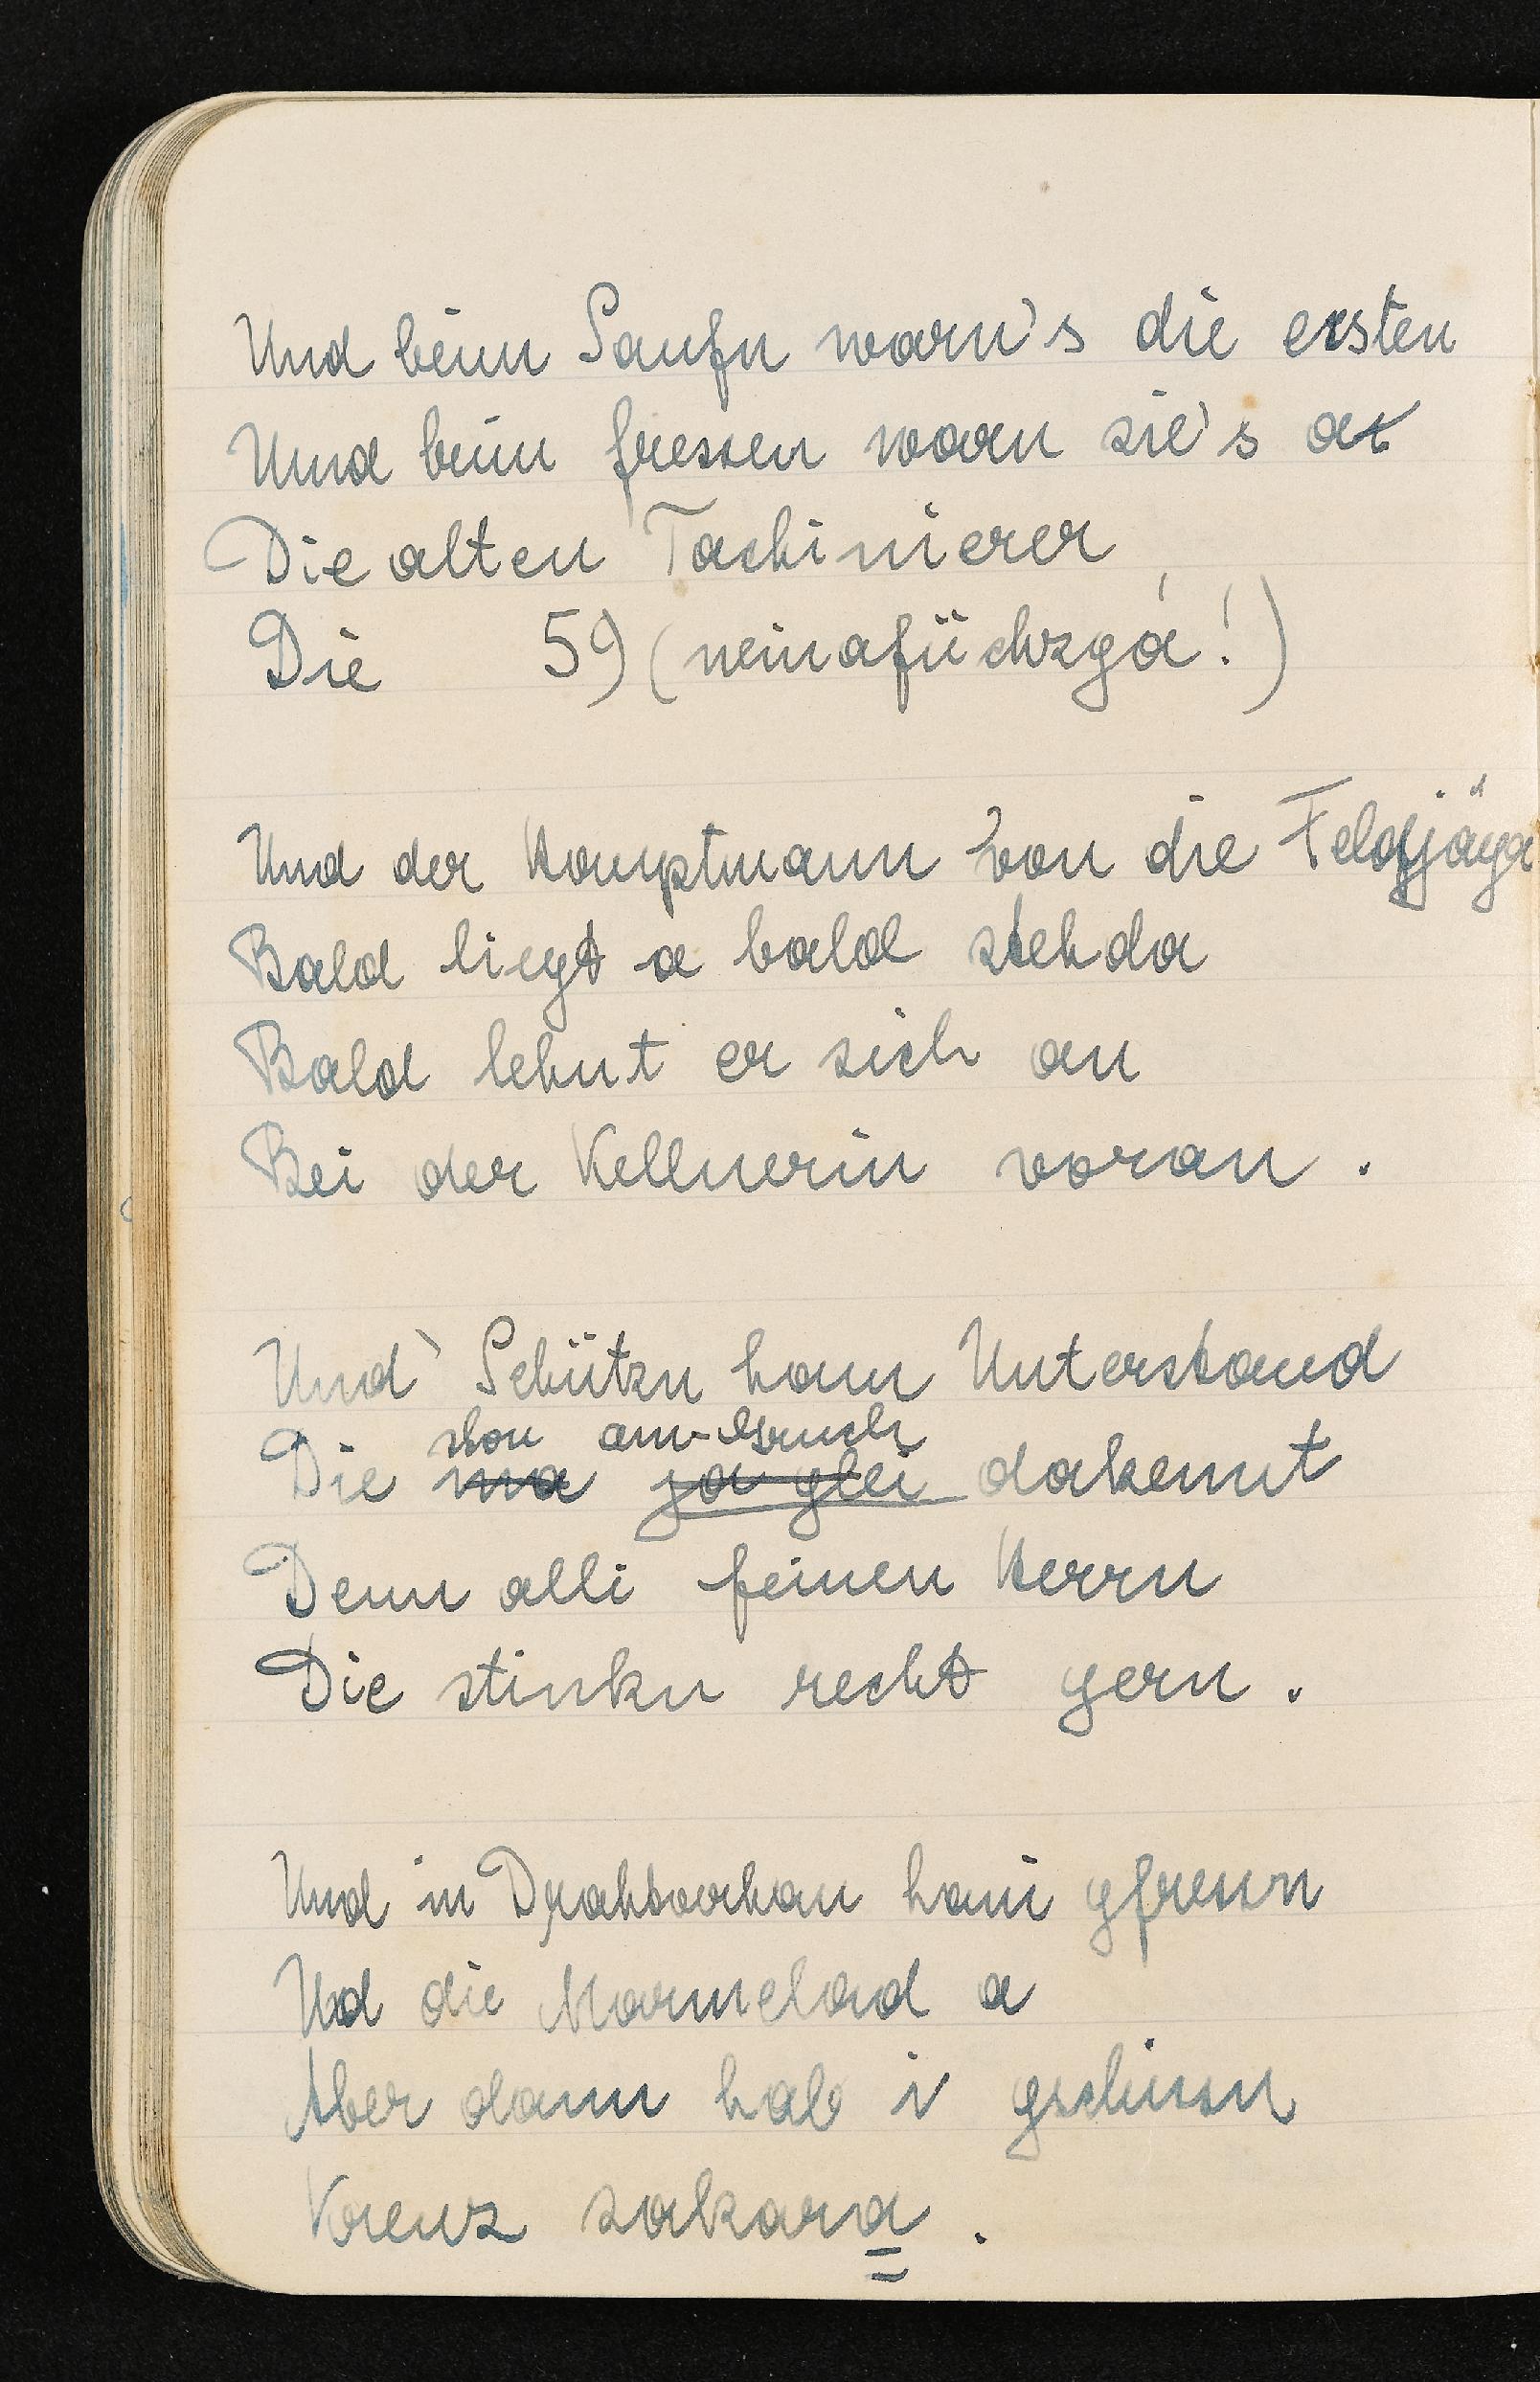 Und beim Saufn warn's die ersten
Und beim fressen warn sie's a
Die alten Tachinierer
Die 59 (neinafüchzgá!)
Und der Hauptmann von die Feldjäga
Bald liegt a bald steh da
Bald lehnt er sich an
Bei der Kellnerin voran.
Und' Schützn ham Unterstand
schon am Gruch
Die ma ja glei dakennt
Denn alli feinen Herrn
Die stinkn recht gern.
Und in Drahtvorhau hani gfressn
Und die Marmelad a
Aber dann hab i gschissn
Kreuz sakara.